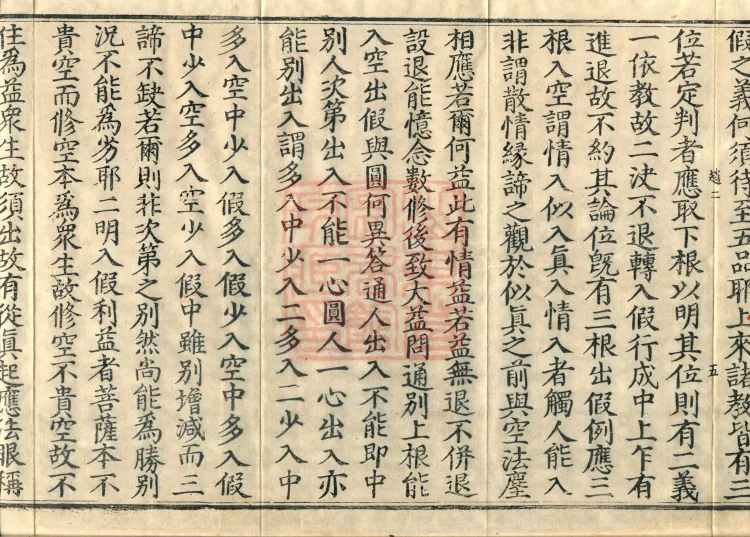 假之義何須待至五品耶上來諸教皆有三
位若定判者應取下根以明其位則有二義
一依教故二決不退轉入假行成中上乍有
進退故不約其論位旣有三根出假例應三
根入空謂情入似入眞入情入者觸人能入
非謂散情緣諦之觀於似眞之前與空法塵
相應若爾何益此有情益若益無退不併退
設退能憶念數修後致大益問通別上根能
入空出假與圓何異答通人出入不能即中
別人次第出入不能一心圓人一心出入亦
能別出入謂多入中少入二多入二少入中
多入空中少入假多入假少入空中多入假
中少入空多入空少入假中雖別增減而三
諦不缺若爾則非次第之別然尚能爲勝別
況不能爲劣耶二明入假利益者菩薩本不
貴空而修空本爲衆生故修空不貴空故不
住爲益衆生故須出故有從眞起應法眼稱
趙二
五